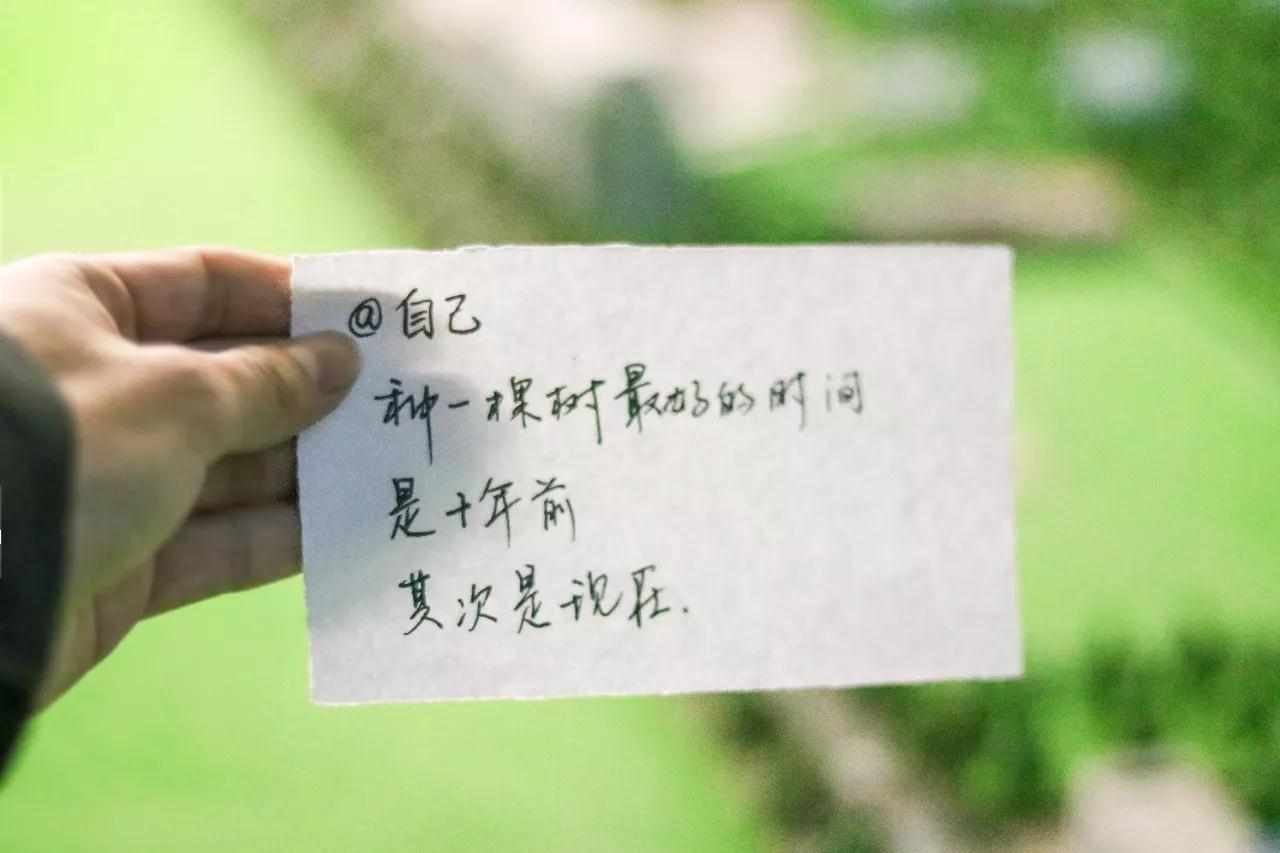 @自己
种一棵树最好的时间
是十年前
其次是现在.